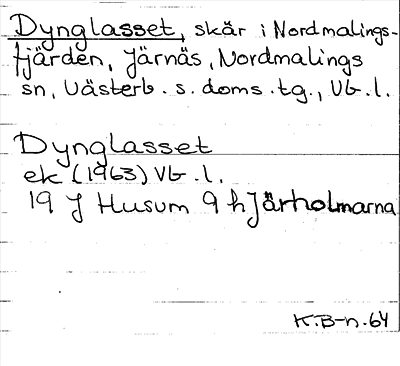 Dynglasset, skär i Nordmalings-
fjärden, Järnäs, Nordmalings
sn, Västerb. s. doms. tg., Vb. l.
Dynglasset
ek (1963) Vb. l.
19 J Husum 9 h Järholmarna
K.B-n. 64